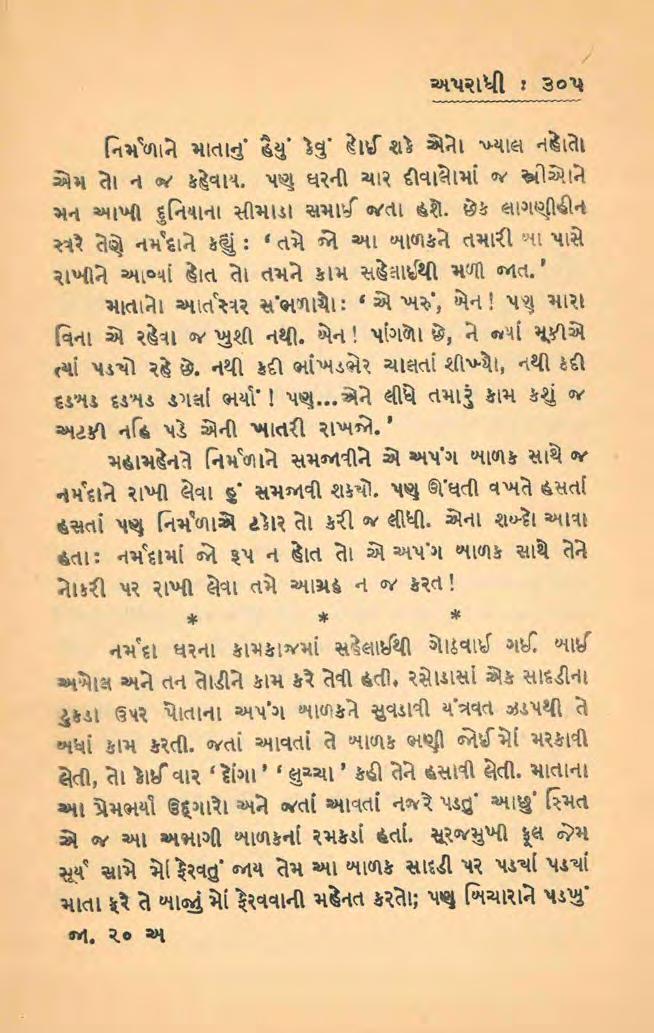 અપરાધી : ૩૦૫
નિર્મળાને માતાનું હૈયું કેવું હોઈ શકે એનો ખ્યાલ નહોતો
એમ તો ન જ કહેવાય. પણ ઘરની ચાર દીવાલોમાં જ સ્ત્રીઓને
મન આખી દુનિયાના સીમાડા સમાઈ જતા હશે. છેક લાગણીહીન
સ્વરે તેણે નર્મદાને કહ્યું : ‘ તમે જો આ બાળકને તમારી બા પાસે
રાખીને આવ્યાં હોત તો તમને કામ સહેલાઈથી મળી જાત.’
માતાનો આર્તસ્વર સંભળાયો: ‘ એ ખરું, બેન! પણ મારા
વિના એ રહેવા જ ખુશી નથી. બેન! પાંગળો છે, ને જ્યાં મૂકીએ
ત્યાં પડ્યો રહે છે. નથી કદી ભાંખડભેર ચાલતાં શીખ્યો, નથી કદી
દડબડ દડબડ ડગલાં ભર્યાં ! પણ...એને લીધે તમારું કામ કશું જ
અટકી નહિ પડે એની ખાતરી રાખજો.’
મહામહેનતે નિર્મળાને સમજાવીને એ અપંગ બાળક સાથે જ
નર્મદાને રાખી લેવા હું સમજાવી શક્યો. પણ ઊંઘતી વખતે હસતાં
હસતાં પણ નિર્મળાએ ટકોર તો કરી જ લીધી. એના શબ્દો આવા
હતા: નર્મદામાં જો રૂપ ન હોત તો એ અપંગ બાળક સાથે તેને
નોકરી પર રાખી લેવા તમે આગ્રહ ન જ કરત!
* * *
નર્મદા ઘરના કામકાજમાં સહેલાઈથી ગોઠવાઈ ગઈ. બાઈ
અબોલ અને તન તોડીને કામ કરે તેવી હતી. રસોડામાં એક સાદડીના
ટુકડા ઉપર પોતાના અપંગ બાળકને સુવડાવી યંત્રવત ઝડપથી તે
બધાં કામ કરતી. જતાં આવતાં તે બાળક ભણી જોઈ મોં મરકાવી
લેતી, તો કોઈ વાર ‘ દોંગા ’ ‘ લુચ્ચા ’ કહી તેને હસાવી લેતી. માતાના
આ પ્રેમભર્યા ઉદ્‌ગારો અને જતાં આવતાં નજરે પડતું આછું સ્મિત
એ જ આ અભાગી બાળકનાં રમકડાં હતાં. સૂરજમુખી ફૂલ જેમ
સૂર્ય સામે મોં ફેરવતું જાય તેમ આ બાળક સાદડી પર પડ્યાં પડ્યાં
માતા ફરે તે બાજું મોં ફેરવવાની મહેનત કરતો; પણ બિચારાને પડખું
જા. ૨૦ અ